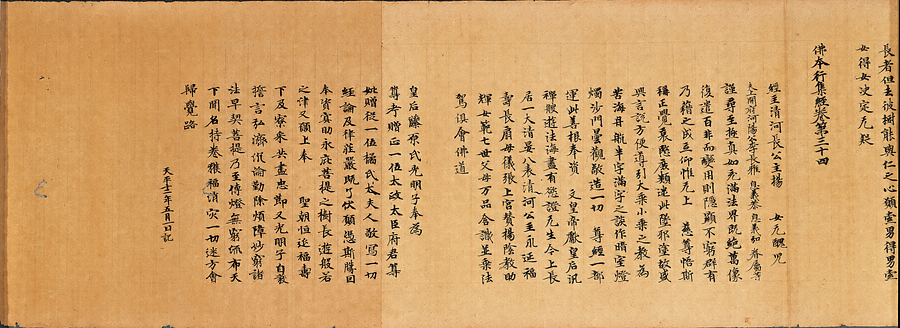 長者但去彼樹能與仁之心願索男得男索
女得女決定无疑
佛本行集經卷第三十四
經主清河長公主楊 女尤醜児
夫上開府河陽公李長雅
謹尋至極真如充滿法界既絕萬像
復遣百非而應用則隱顯不窮群有
乃藉之成立仰惟无上 慈尊愍斯
稱正覺 類迷此墜邪塗故
興言說方便導引大乘小乘之教為
苦海舟航半字滿字之談作暗室燈
燭沙門曇觀敬造一切 尊經一部
運此善根奉資 文皇帝獻皇后汎
禪艘遊法海盡有 證无生今上長
居一大清晏八表清河公主永延福
壽長 母儀 上宮贊揚陰教助
輝女範七世父母万品含識並乘法
駕俱會佛道
皇后藤原氏光明子奉為
尊考贈正一位太政太臣府君尊
妣贈從一位橘氏太夫人敬寫一切
經論及律莊嚴既了伏願憑斯勝因
奉資冥助永庇菩提之樹長遊般若
之津又願上奉 聖朝恒延福壽
下及寮采共盡忠節又光明子自發
誓言弘濟沉淪勤除煩障妙窮諸
法早契菩提乃至傳燈無窮流布天
下聞名持卷獲福消灾一切迷方會
歸覺路
天平十二年五月一日記